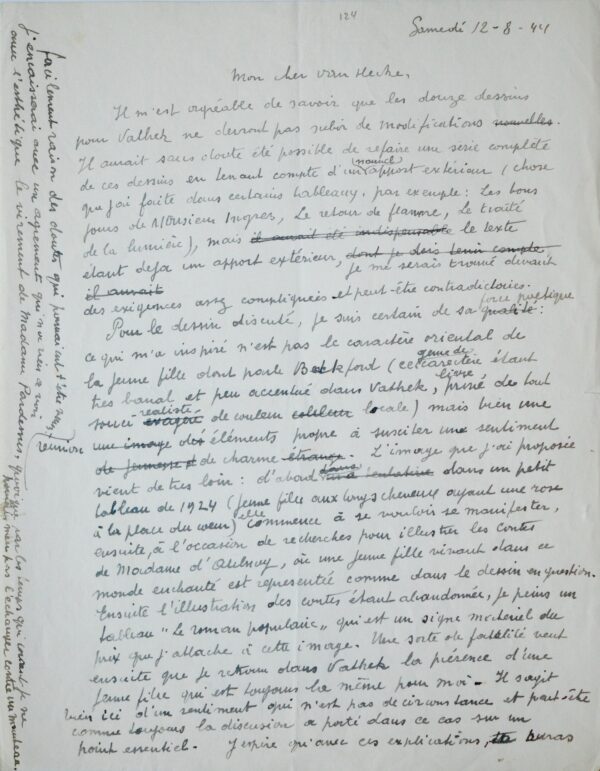 124
Samedi 12-8-44
Mon cher Van Hecke,
Il m'est agréable de savoir que les douze dessins
pour Vathek ne devront pas subir de modifications nouvelles.
Il aurait sans doute été possible de refaire une série complète
de ces dessins en tenant compte d'un nouvel apport extérieur (chose
que j'ai faite dans certains tableaux, par exemple : Les bons
jours de Monsieur Ingres, Le retour de flamme, Le traité
de la lumière), mais il aurait été indispensable le texte
étant déjà un apport extérieur, dont je dois tenir compte,
il aurait je me serais trouvé devant
des exigences assez compliquées et peut-être contradictoires.
Pour le dessin discuté, je suis certain de sa qualité force poétique :
ce qui m'a inspiré n'est pas le caractère oriental de
la jeune fille dont parle Beckford (ce genre de caractère étant
très banal et peu accentué dans Vathek, livre privé de tout
souci réaliste de couleur locale) mais bien une
réunion une image des éléments propre à susciter un sentiment
de jeunesse et de charme étrange. L'image que j'ai proposée
vient de très loin : d'abord dans un petit
tableau de 1924 (jeune fille aux longs cheveux ayant une rose
à la place du cœur) elle commence à se vouloir se manifester,
ensuite, à l'occasion de recherches pour illustrer les contes
de Madame d'Aulnoy, où une jeune fille vivant dans ce
monde enchanté est representée comme dans le dessin en question.
Ensuite l'illustration des contes étant abandonnée, je peins un
tableau "Le roman populaire" qui est un signe matériel du
prix que j'attache à cette image. Une sorte de fatalité veut
ensuite que je retrouve dans Vathek la présence d'une
jeune fille qui est toujours la même pour moi. Il s'agit
bien ici d'un sentiment qui n'est pas de circonstance et peut-être
comme toujours la discusion a porté dans ce cas sur un
point essentiel. J'espère qu'avec ces explications, tu auras
facilement raison des doutes qui pourraient t'être
J'encaisserai avec un agrément qui n'a rien à voir
avec l'esthétique le virement de Madame quoique par les temps qui courent je ne
pourrai même pas l'échanger contre un manteau.